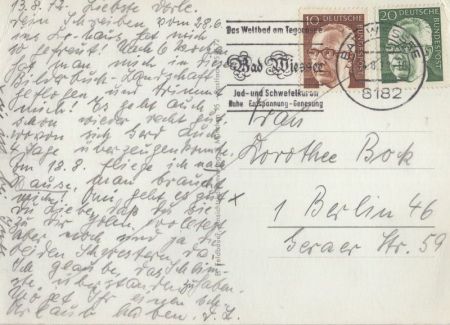 13.8.72. Liebste Dorle.
Dein Schreiben vom 28.6.
ins Kr-haus hat mich
so gefreut! Nach 6 Wochen
hat man mich in diese
Bilderbuch-Landschaft
geflogen und trimmt
mich! Es geht auch
schon wieder recht gut
wovon sich Gerd auch
4 Tage überzeugen konnte.
am 18.8. fliege ich nach
Hause, man braucht
mich! Nun geht es gut
Du Liebe, daß Du Dir
zu
aber noch sind ja die
beiden Schwestern da.
Ich glaube, das Schlim-
ste überstanden zu haben.
Ihr einen
Urlaub haben.
Das Weltbad am Tegernsee
Bad Wiessee
Jod- und Schwefelkuren
Ruhe Entspannung Genesung
10 DEUTSCHE BUNDESPOST
20 DEUTSCHE BUNDESPOST
BAD WIESSEE
8182
Frau
Dorothee Bock
1 Berlin 46
Geraer Str. 59